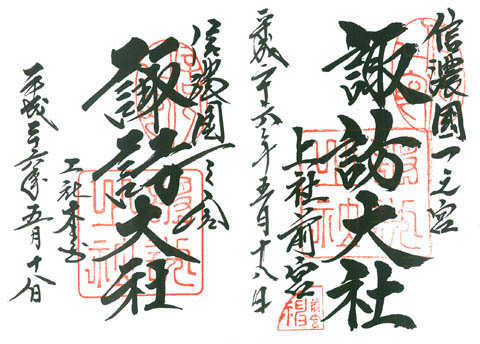 信濃國一之宮
諏訪大社
上社前宮
平成二十六年五月十八日
信濃國一之宮
諏訪大社
上社本宮
平成二十六年五月十八日